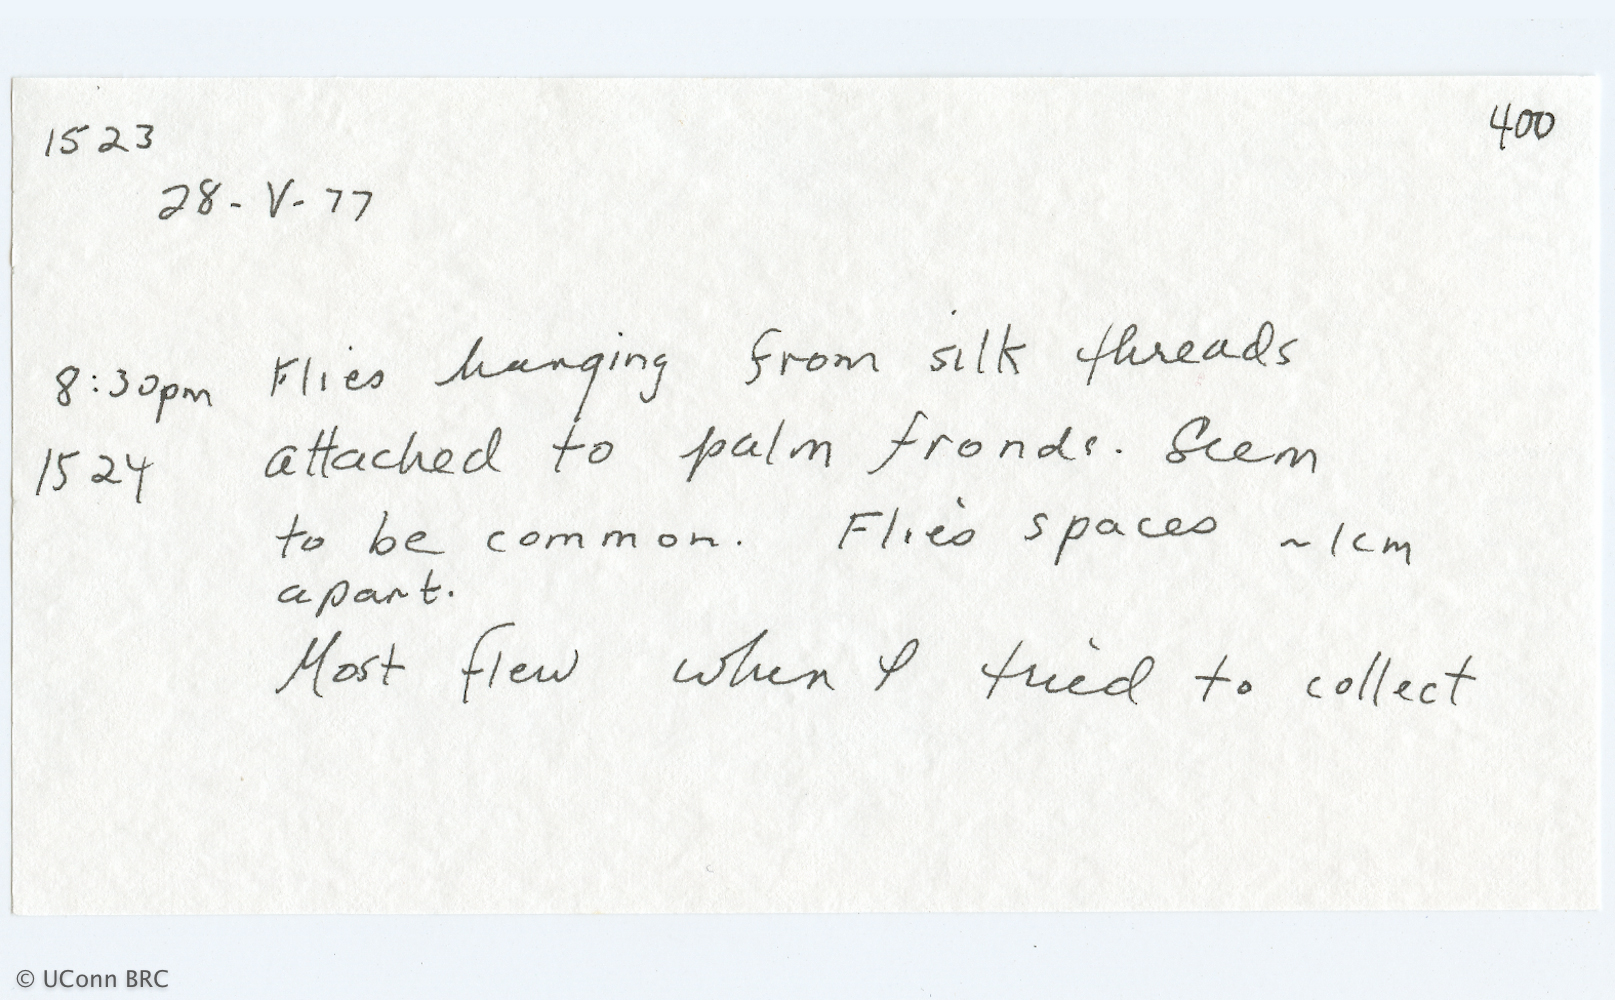 1523
400
28-V-77
8:30pm Flies hanging from silk threads
1524 attached to palm fronds. Seem
to be common. Flies spaces ~1cm
apart.
Most flew when I tried to collect
© UConn BRC